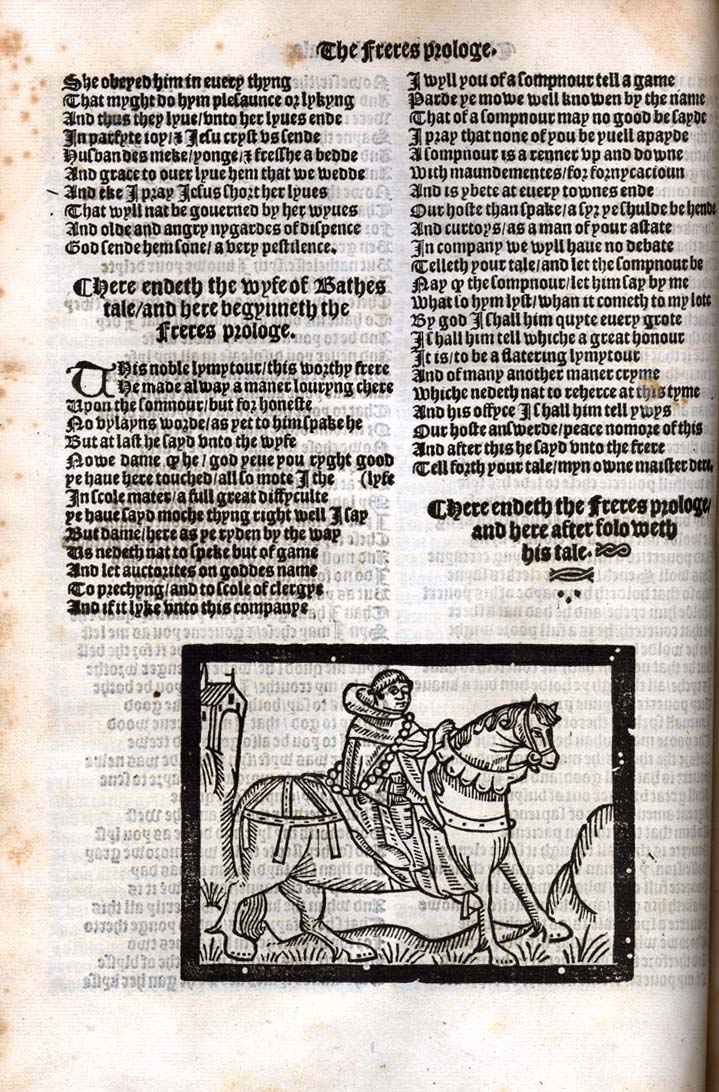 The Freres prologe.
She obeyed him in euery thyng
That myght do hym plesaunce or lykyng
And thus they lyue/vnto her lyues ende
In parfyte ioy/⁊ Jesu cryst vs sende
Husbandes meke/yonge/⁊ fresshe a bedde
And grace to ouer lyue hem that we wedde
And eke I pray Jesus short her lyues
That wyll nat be gouerned by her wyues
And olde and angry nygardes of dispence
God sende hem sone/ a very pestilence.
Here endeth the wyfe of Bathes
tale/and here begynneth the
Freres prologe.
THis noble lymytour/this worthy frere
He made alway a maner louryng chere
Upon the somnour/but for honeste
No vylayns worde/as yet to him spake he
But at last he sayd vnto the wyfe
Nowe dame ꝙ he / god yeue you ryght good
ye haue here touched/all so mote I the (lyfe
In scole mater/a full great diffyculte
ye haue sayd moche thyng right well I say
But dame/here as ye ryden by the way
Us nedeth nat to speke but of game
And let auctorites on goddes name
To prechyng/and to scole of clergye
And if it lyke vnto this companye
I wyll you of a sompnour tell a game
Parde ye mowe well knowen by the name
That of a sompnour may no good be sayde
I pray that none of you be yuell apayde
A sompnour is a renner vp and downe
With maundementes/for fornycacioun
And is ybete at euery townes ende
Our hoste than spake/a syr ye shulde be hende
And curtoys/as a man of your astate
In company we wyll haue no debate
Telleth your tale/and let the sompnour be
Nay ꝙ the sompnour/let him say by me
What so hym lyst/whan it cometh to my lote
By god I shall him quyte euery grote
I shall him tell whiche a great honour
It is/to be a flatering lymytour
And of many another maner cryme
Whiche nedeth nat to reherce at this tyme
And his offyce I shall him tell ywys
Our hoste answerde/peace nomore of this
And after this he sayd vnto the frere
Tell forth your tale/myn owne maister dere.
Here endeth the Freres prologe/
and here after foloweth
his tale.